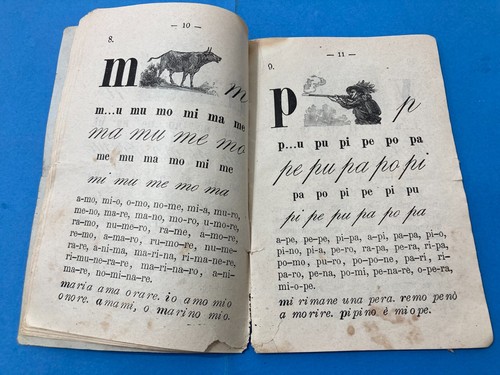 — 10 —
8.
m m
m...u mu mo mi ma me
ma mu me mo
me mu ma mo mi me
mi mu me mo ma
a-mo, mi-o, o-mo, no-me, mi-a, mu-ro,
me-no, ma-re, ma-no, mo-ro, u-mo-re,
ra-mo, nu-me-ro, ra-me, a-mo-re,
re-mo, a-ma-ro, ru-mo-re, nu-me-
ra-re, a-ni-ma, ma-ri-na, ri-ma-ne-re,
ri-mu-ne-ra-re, ma-ri-na-ro, a-ni-
ma-re, no-mi-na-re.
maria ama orare. io amo mio
onore. amami, o marino mio.
— 11 —
9.
p p
p...u pu pi pe po pa
pe pu pa po pi
pa po pi pe pi pu
pi pe pu pa po pa
a-pe, pe-pe, pi-pa, a-pi, pa-pa, pi-o,
pi-no, pi-a, pe-ro, ra-pa, pe-ra, ri-pa,
po-mo, pu-ro, po-po-ne, pa-ri, ri-
pa-ro, pe-na, po-mi, pe-na-rè, o-pe-ra,
mi-o-pe.
mi rimane una pera. remo penò
a morire. pipino è miope.